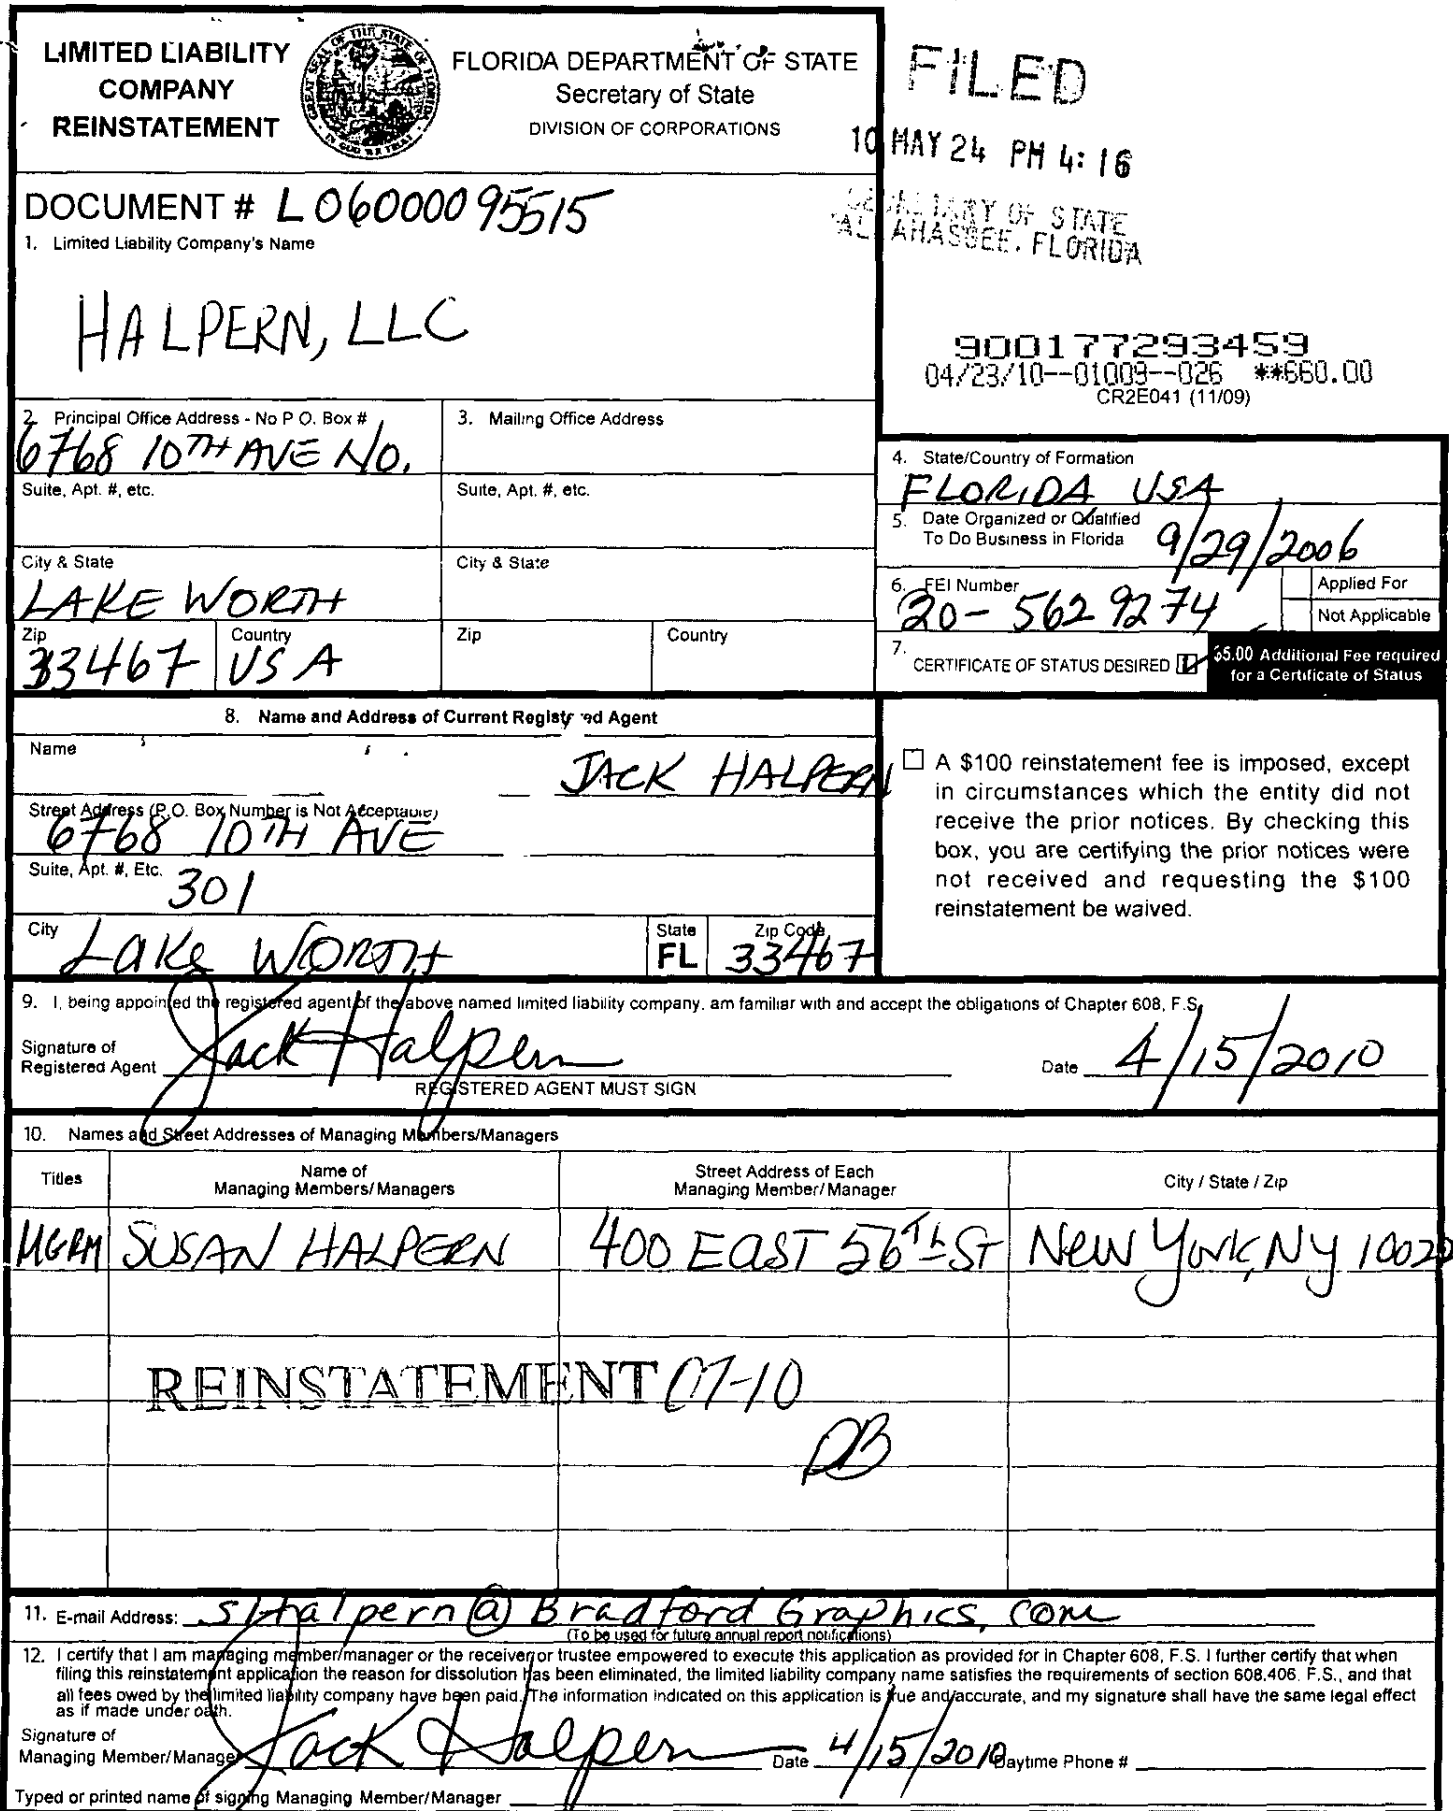 LIMITED LIABILITY
COMPANY
REINSTATEMENT
GREAT SEAL OF THE STATE OF FLORIDA
IN GOD WE TRUST
FLORIDA DEPARTMENT OF STATE
Secretary of State
DIVISION OF CORPORATIONS
FILED
10 MAY 24 PM 4:16
OF STATE
FLORIDA
DOCUMENT # L06000095515
1. Limited Liability Company's Name
HALPERN, LLC
900177293459
04/23/10--01009--026 **660.00
CR2E041 (11/09)
2. Principal Office Address - No P O. Box #
6768 10TH AVE NO.
Suite, Apt. #, etc.
City & State
LAKE WORTH
Zip Country
33467 USA
3. Mailing Office Address
Suite, Apt. #, etc.
City & State
Zip Country
4. State/Country of Formation
FLORIDA USA
5. Date Organized or Qualified
To Do Business in Florida 9/29/2006
6. FEI Number
20-5629274
Applied For
Not Applicable
7. CERTIFICATE OF STATUS DESIRED
$5.00 Additional Fee required
for a Certificate of Status
8. Name and Address of Current Registered Agent
Name
JACK HALPERN
Street Address (P.O. Box Number is Not Acceptable)
6768 10TH AVE
Suite, Apt. #, Etc. 301
City Lake WORTH State FL Zip Code 33467
A $100 reinstatement fee is imposed, except
in circumstances which the entity did not
receive the prior notices. By checking this
box, you are certifying the prior notices were
not received and requesting the $100
reinstatement be waived.
9. I, being appointed the registered agent of the above named limited liability company, am familiar with and accept the obligations of Chapter 608, F.S.
Signature of
Registered Agent Jack Halpern Date 4/15/2010
REGISTERED AGENT MUST SIGN
10. Names and Street Addresses of Managing Members/Managers
Titles
Name of
Managing Members/Managers
Street Address of Each
Managing Member/Manager
City / State / Zip
MGRM SUSAN HALPERN 400 EAST 56Th ST New York, NY 10022
REINSTATEMENT 07-10
DB
11. E-mail Address: sHalpern@BradfordGraphics.com
(To be used for future annual report notifications)
12. I certify that I am managing member/manager or the receiver or trustee empowered to execute this application as provided for in Chapter 608, F.S. I further certify that when
filing this reinstatement application the reason for dissolution has been eliminated, the limited liability company name satisfies the requirements of section 608.406, F.S., and that
all fees owed by the limited liability company have been paid. The information indicated on this application is true and accurate, and my signature shall have the same legal effect
as if made under oath.
Signature of
Managing Member/Manager Jack Halpern Date 4/15/2010 Daytime Phone #
Typed or printed name of signing Managing Member/Manager